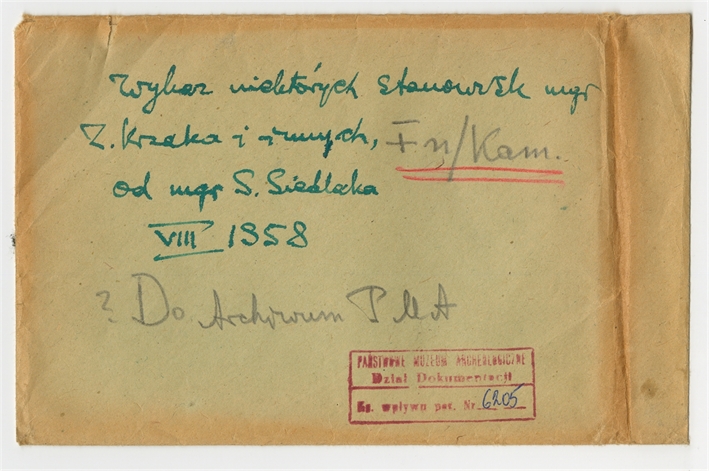 Wykaz niektórych stanowisk mgr
Z. Krzaka i innych,
F n/Kam.
od mgr S. Siedlaka
VIII 1958
? Do Archiwum P M A
PAŃSTWOWE MUZEUM ARCHEOLOGICZNE
Dział Dokumentacji
Ks. wpływu pot. Nr 6205